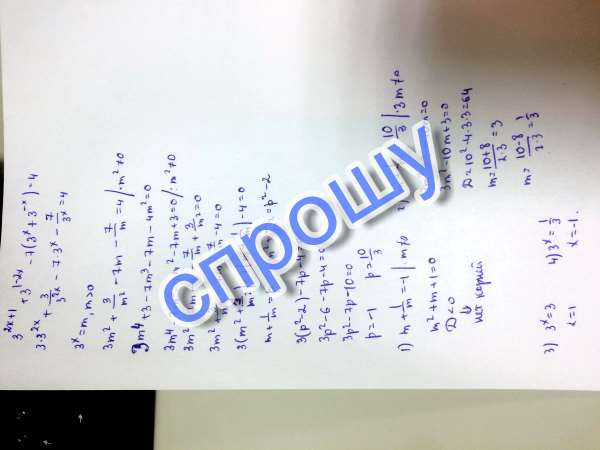 3^{2x+1} + 3^{1-2x} - 7(3^x + 3^{-x}) = 4
3·3^{2x} + 3/3^{2x} - 7·3^x - 7/3^x = 4
3^x = m, m>0
3m² + 3/m² - 7m - 7/m = 4 / ·m² ≠0
3m⁴ + 3 - 7m³ - 7m - 4m² = 0
3m⁴ m² - 7m + 3 = 0 /: m² ≠0
3m² 7/m + 3/m² = 0
3m² + 7/m - 4 = 0
3(m² + ) - 4 = 0
m + 1/m = p² - 2
3(p² - 2) - 7p - 4 =
3p² - 6 - 7p - 4 = 0
3p² - 7p - 10 = 0
p = -1 p = 10/3
1) m + 1/m = -1 | · m ≠0
m² + m + 1 = 0
D < 0
⇓
нет корней
2) 10/3 | · 3m ≠0
m = 0
3m² - 10m + 3 = 0
D = 10² - 4·3·3 = 64
m = (10+8)/(2·3) = 3
m = (10-8)/(2·3) = 1/3
3) 3^x = 3
x = 1
4) 3^x = 1/3
x = -1.
спрошу